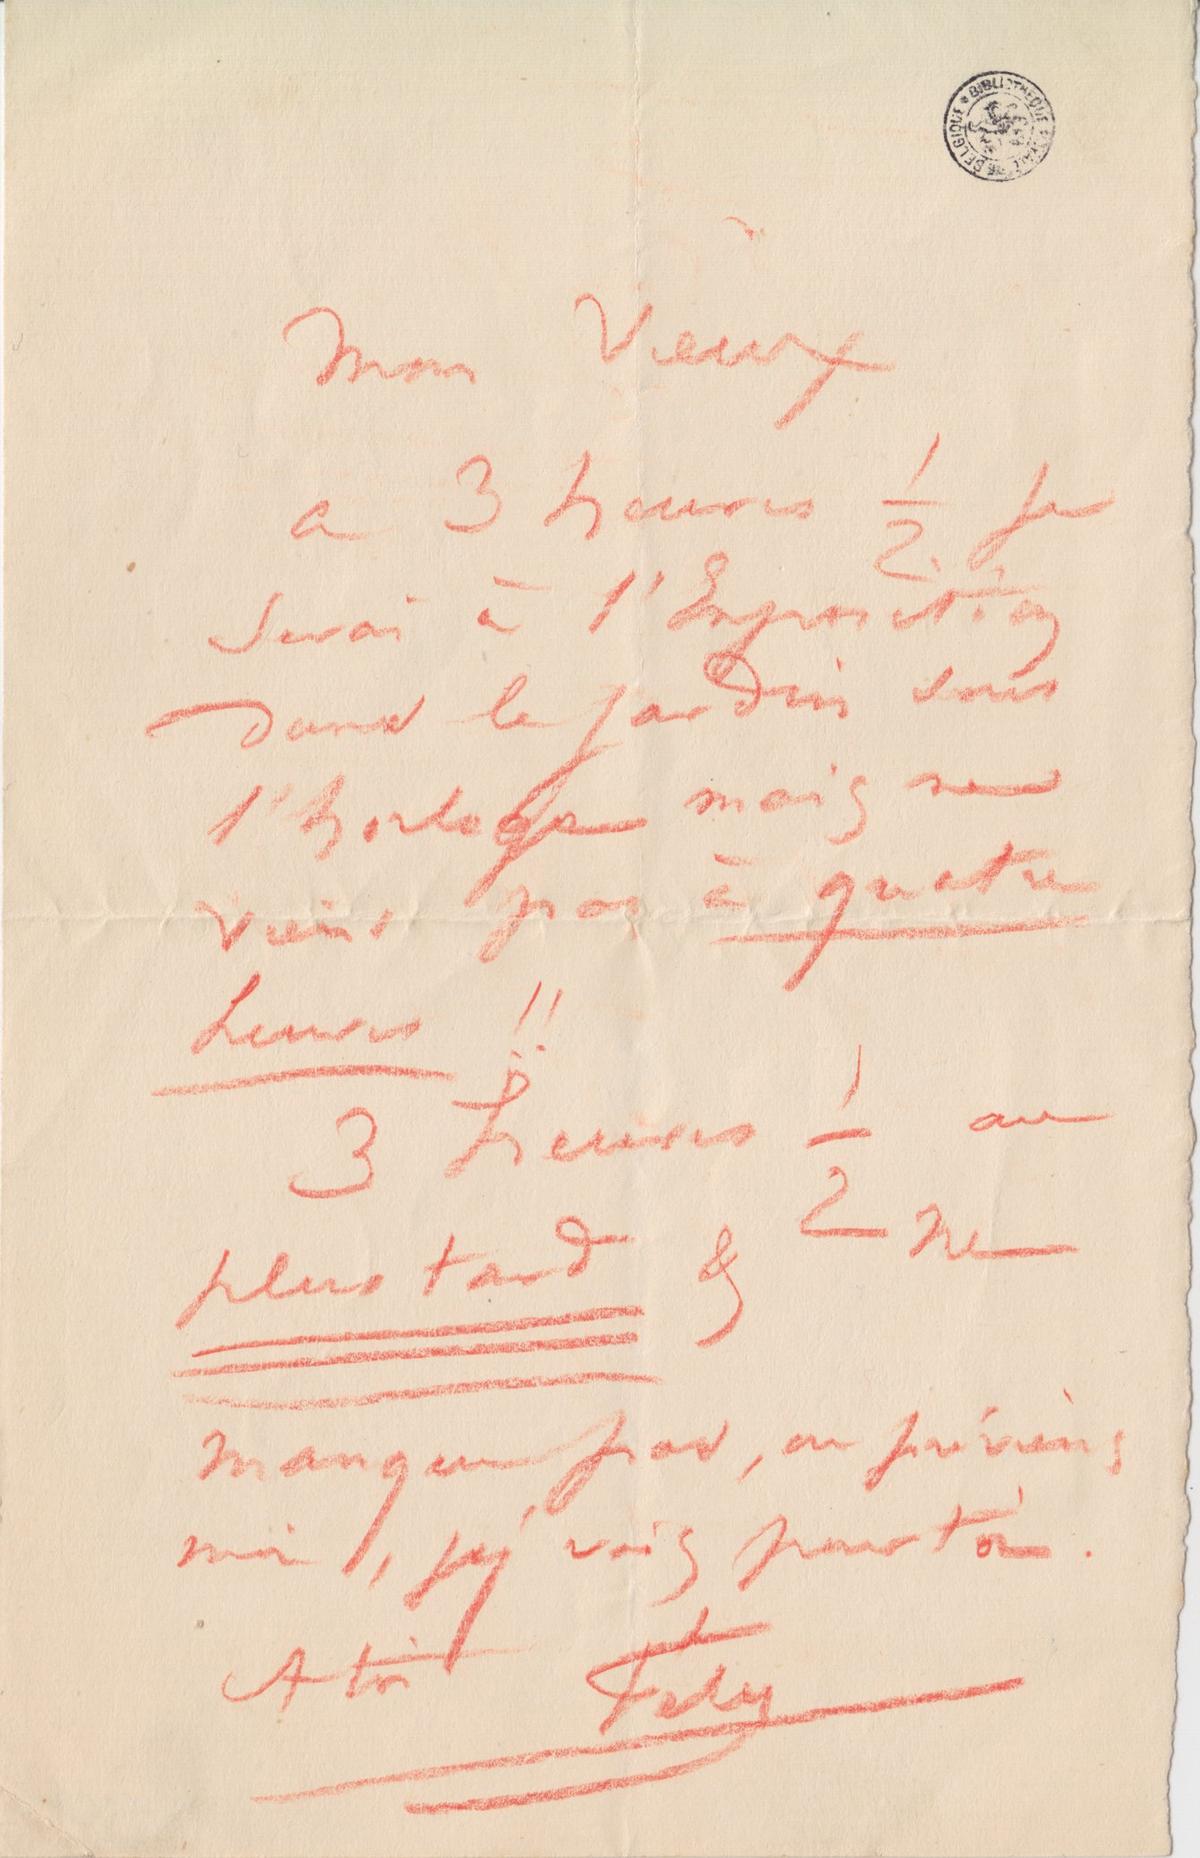 BIBLIOTHEQUE ROYALE DE BELGIQUE
Mon Vieux
a 3 heures 1/2 je
serai à l'Exposition
dans le jardin sous
l'horloge mais ne
viens pas à quatre
heures !!
3 heures 1/2 au
plus tard & ne
manque pas, ou préviens
moi, j'y vais pour toi.
A toi Fély